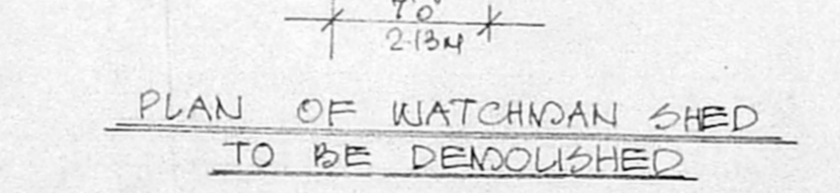 7'0"
2.13M
PLAN OF WATCHMAN SHED
TO BE DEMOLISHED